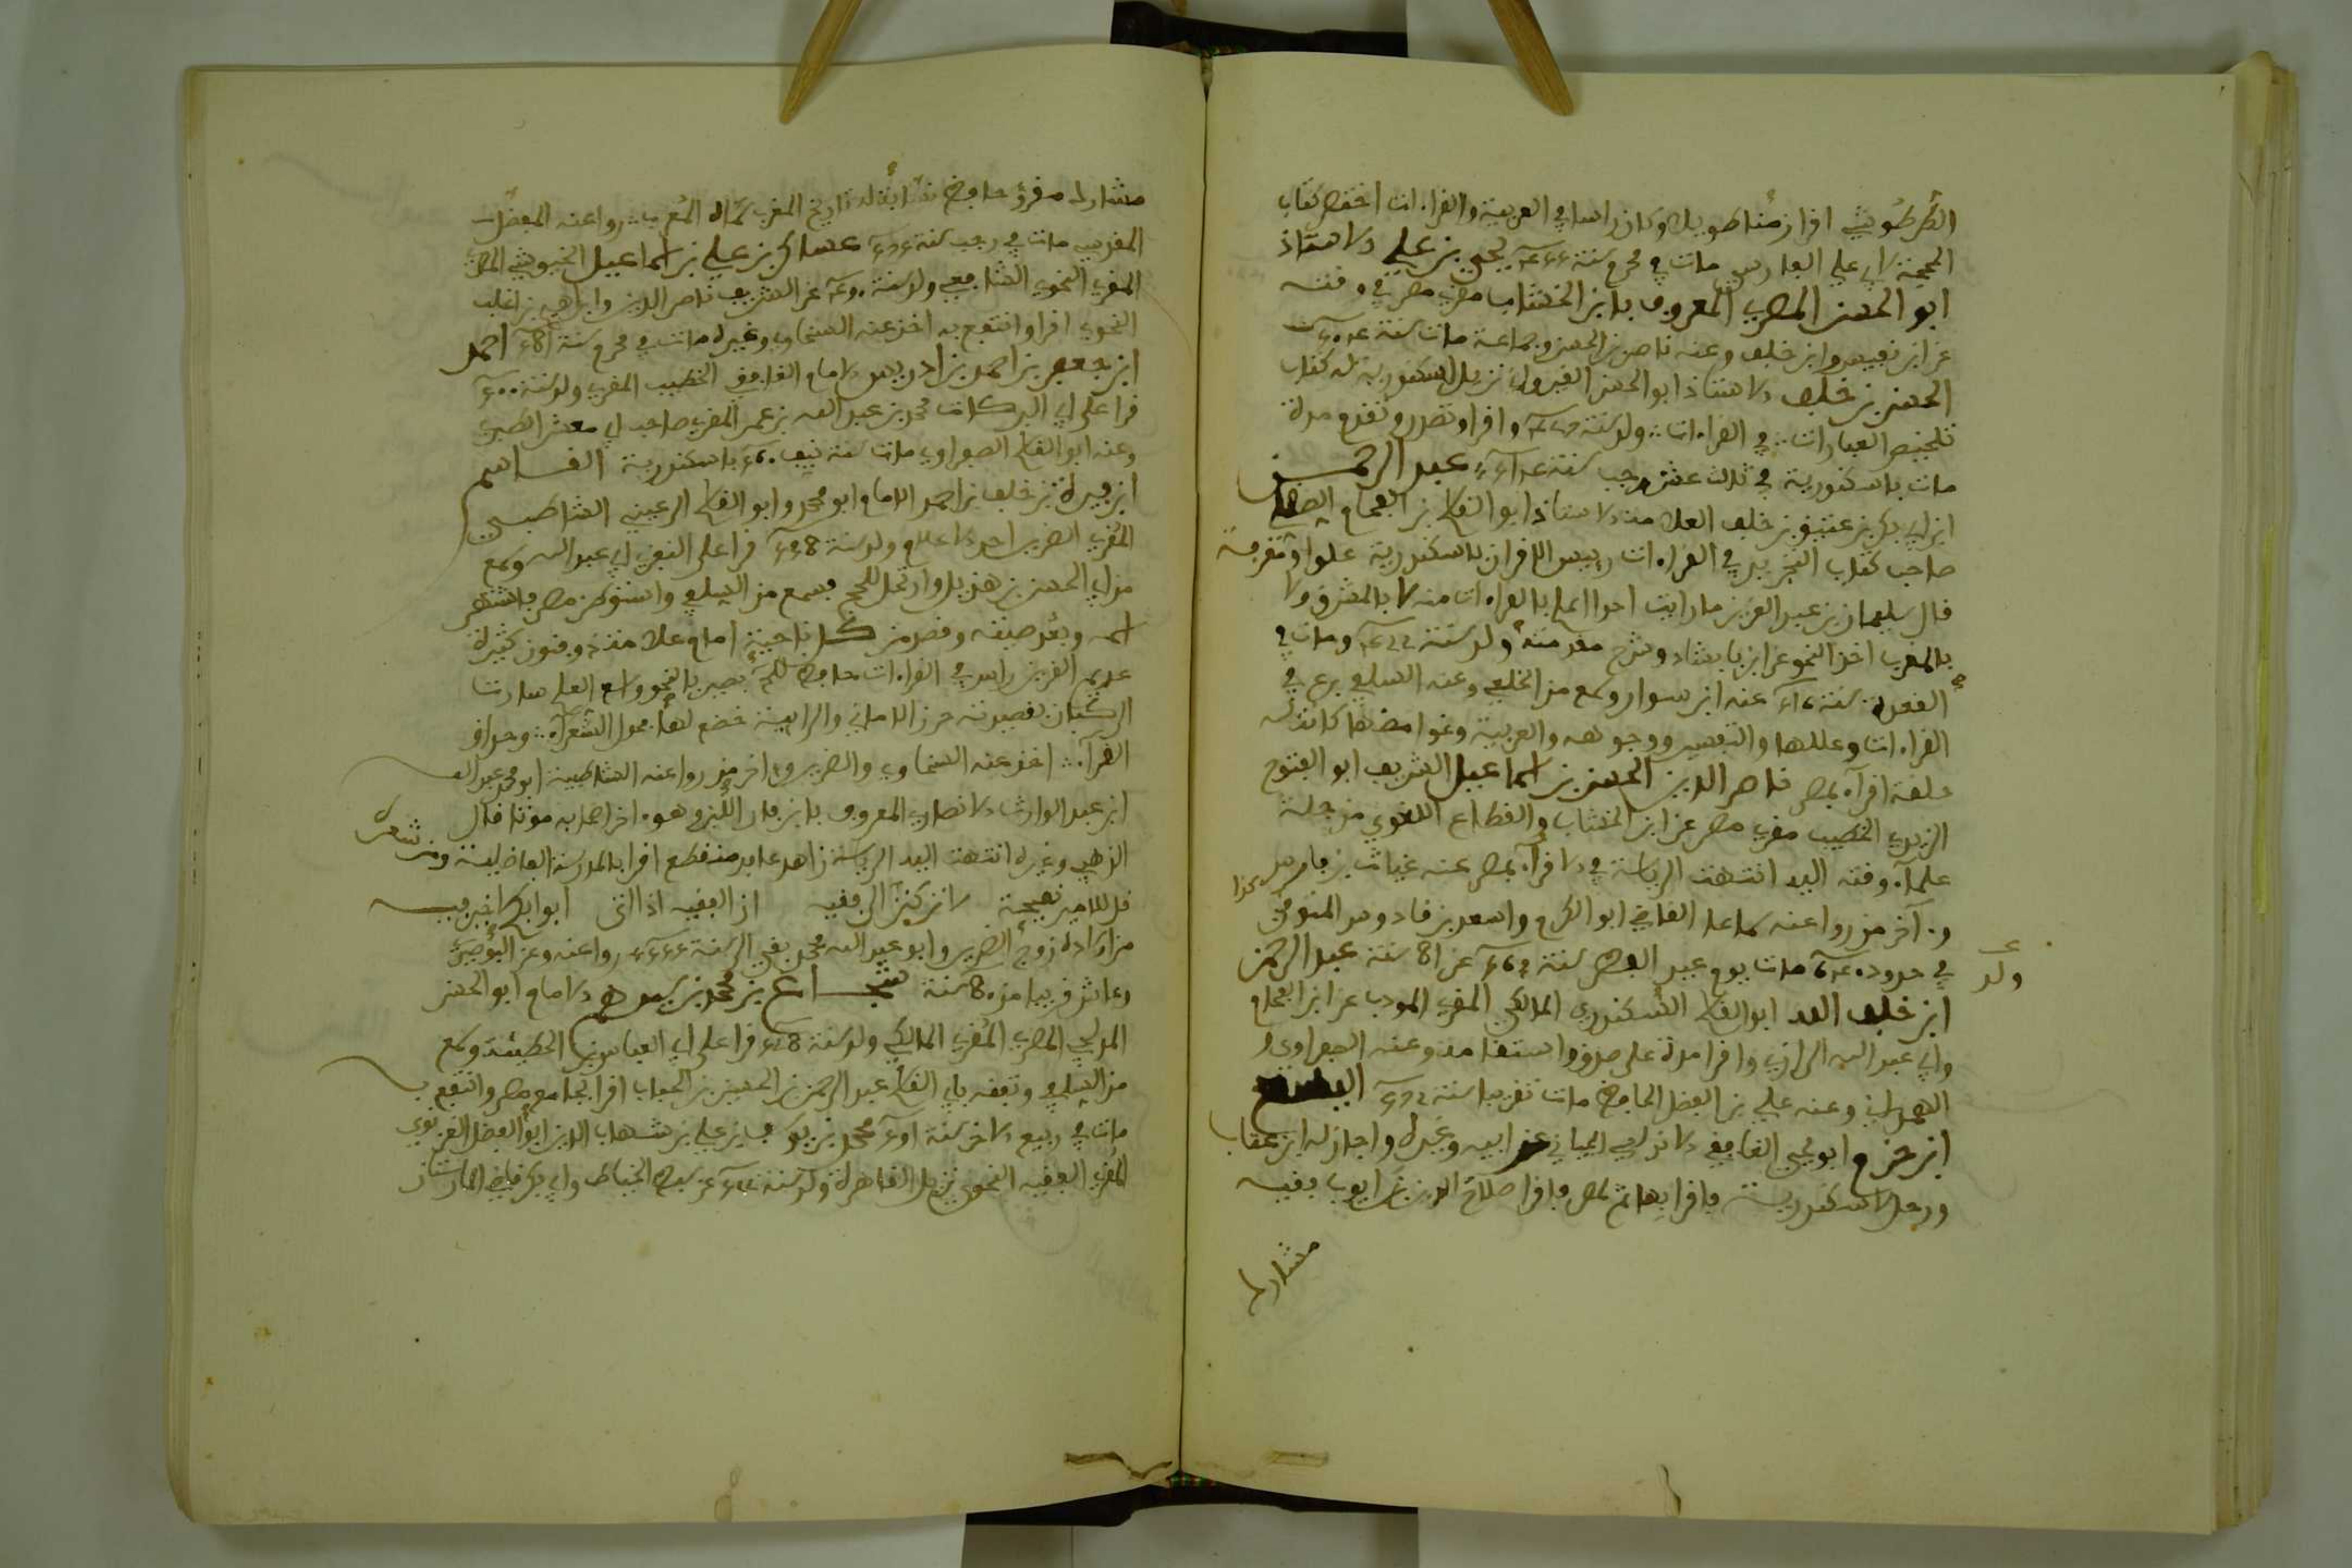 الطرطوشي اقرا زمنا طويلا وكان راسا في العربية والقراءات اختصر كتاب
الحجة لابي علي الفارسي مات في محرم سنة يحيى بن علي الاستاذ
ابو الحسن المصري المعروف بابن الخشاب مقرئ مصر في وقته
عن ابن نفيس وابن خلف وعنه ناصر بن الحسن وجماعة مات سنة
الحسن بن خلف الاستاذ ابو الحسن القيرواني نزيل اسكندرية له كتاب
تلخيص العبارات في القراءات ولد سنة واقرا وتصدر وتقدم مدة
مات باسكندرية في ثالث عشر رجب سنة عبد الرحمن
ابن ابي بكر بن عتيق بن خلف العلامة الاستاذ ابو القاسم بن الفحام الصقلي
صاحب كتاب التجريد في القراءات رييس الاقران باسكندرية علوا ومعرفة
قال سليمان بن عبد العزيز ما رايت احدا اعلم بالقراءات منه لا بالمشرق ولا
بالمغرب اخذ النحو عن ابن بابشاد وشرح مقدمته ولد سنة ومات في
القعدة سنة عنه ابن سوار وسمع من الخلعي وعنه السلفي برع في
القراءات وعللها والتفسير ووجوهه والعربية وغوامضها كانت له
حلقة اقراء بمصر ناصر الدين الحسن بن اسماعيل الشريف ابو الفتوح
الزيدي الخطيب مقرئ مصر عن ابن الخشاب والقطاع اللغوي من جلة
علماء وقته اليه انتهت الرياسة في الاقراء بمصر عنه غياث بن فارس
و آخر من روا عنه سماعا القاضي ابو الكرم واسعد بن قادوس المتوفى
في حدود مات يوم عيد الفطر سنة عن 81 سنة عبد الرحمن
ولد
ابن خلف الله ابو القاسم السكندري المالكي المقرئ المودب عن ابن الفحام
وابي عبد الله الرازي واقرا مدة على صدق واستقامة وعنه الصفراوي و
الهمداني وعنه علي بن الفضل الحافظ مات تقريبا سنة اليسع
ابن حزم ابو يحيى الغافقي الاندلسي الجياني عن ابيه وغيره واجاز له ابن عتاب
ورحل لاسكندرية فاقرا بها ثم بمصر فاقرا صلاح الدين بن ايوب فقيه
مشاور
مشاور مقرئ حافظ نسابة له تاريخ المغرب سماه المغرب روا عنه المفضل
المقدسي مات في رجب سنة عساكر بن علي بن اسماعيل الخيوشي المصري
المقرئ النحوي الشافعي ولد سنة عن الشريف ناصر الدين وابراهيم بن اغلب
النحوي اقرا وانتفع به اخذ عنه السخاوي وغيره مات في محرم سنة احمد
ابن جعفر بن احمد بن ادريس الامام الغافقي الخطيب المقرئ ولد سنة
قرا على ابي البركات محمد بن عبد الله بن عمر المقرئ صاحب ابي معشر الطبري
وعنه ابو القاسم الصفراوي مات سنة نيف باسكندرية القاسم
ابن فيرة بن خلف بن احمد الامام ابو محمد وابو القاسم الرعيني الشاطبي
المقرئ الضرير احد الاعلام ولد سنة قرا على النفزي ابي عبد الله وسمع
من ابي الحسن بن هذيل وارتحل للحج فسمع من السلفي واستوطن مصر فاشتهر
اسمه وبعد صيته وقصد من كل ناحية امام علامة ذو فنون كثيرة
عديم القرين راس في القراءات حافظ بصير بالنحو واسع العلم سارت
الركبان بقصيدته حرز الاماني والرائية خضع لها فحول الشعراء وحذاق
القراء اخذ عنه السخاوي والضرير و اخر من روا عنه الشاطبية ابو محمد عبد الله
ابن عبد الوارث الانصاري المعروف بابن فار اللبن وهو اخر اصحابه موتا قال
الذهبي وغيره انتهت اليه الرياسة زاهد عابد منقطع اقرا بالمدرسة الفاضلية ومن شعره
قل للامير نصيحة لا تركنن الى فقيه ان الفقيه اذا اتى ابوابكم لا خير فيه
من اولاده زوجة الضرير وابو عبد الله محمد بقي الى سنة روا عنه وعن البوصيري
وعاش قريبا من 80 سنة شجاع بن محمد بن سيدهم الامام ابو الحسن
المدلجي المصري المقرئ المالكي ولد سنة قرا على ابي العباس بن الحطيئة وسمع
من السلفي وتفقه بابي القاسم عبد الرحمن بن الحسين بن الحباب اقرا بجامع مصر وانتفع به
مات في ربيع الاخر سنة محمد بن يوسف بن علي بن شهاب الدين ابو الفضل الغزنوي
المقرئ الفقيه النحوي نزيل القاهرة ولد سنة عن سبط الخياط وابي بكر قاضي المارستان